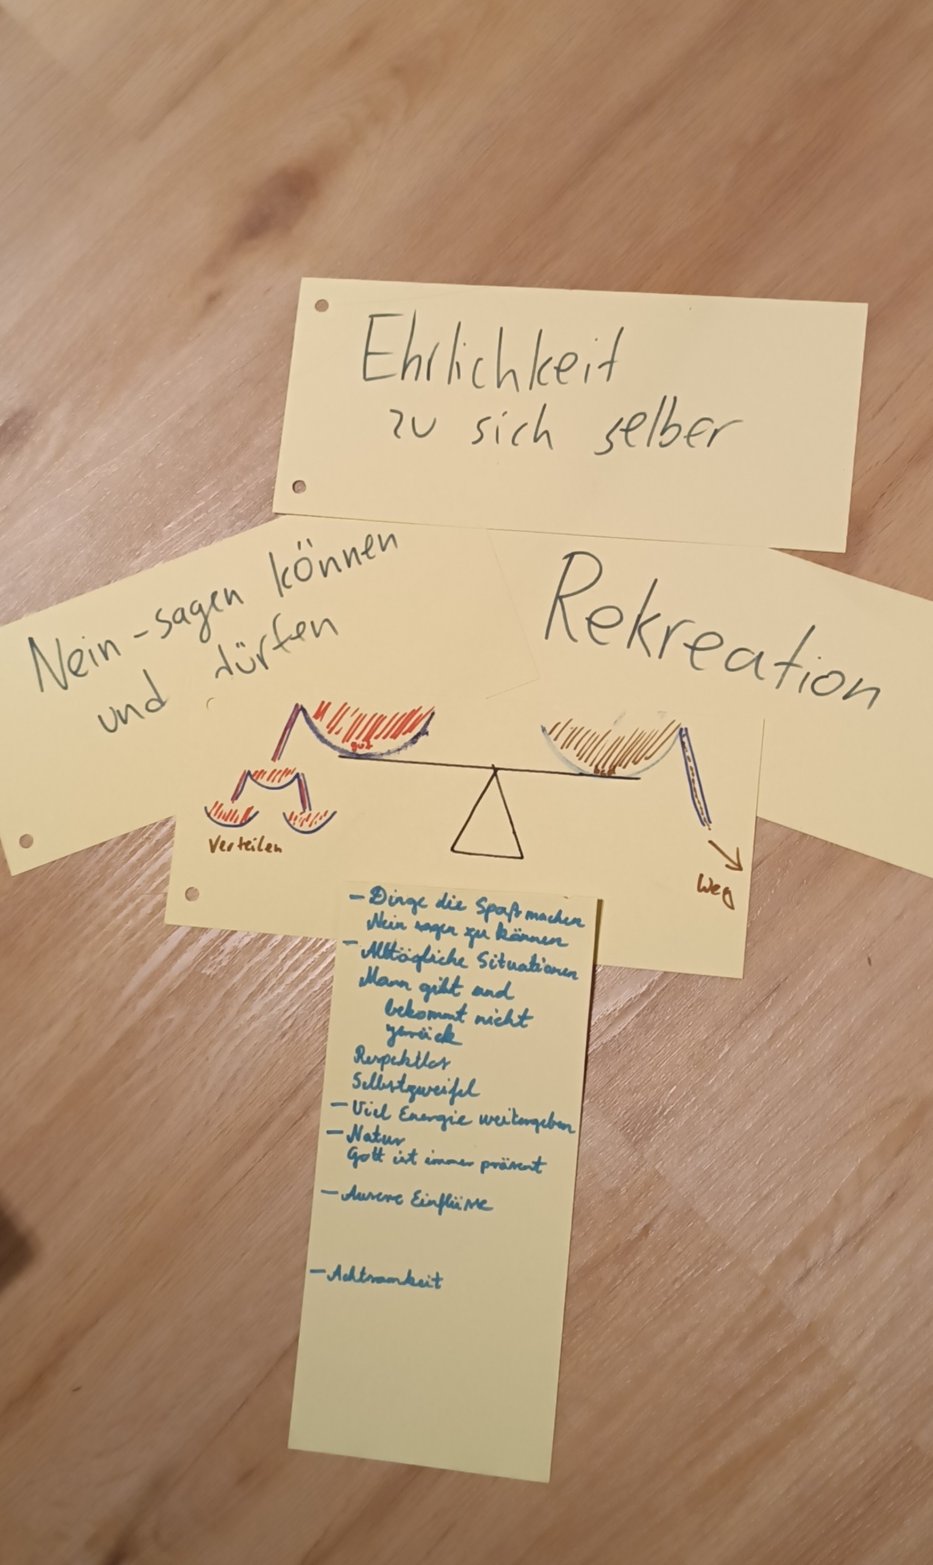 Ehrlichkeit
zu sich selber
Nein-sagen können
und dürfen
Rekreation
gut
Verteilen
Weg
- Dinge die Spaß machen
Nein sagen zu können
- Alltägliche Situationen
Mann gibt und
bekommt nicht
zurück
Respektlos
Selbstzweifel
- Viel Energie weitergeben
- Natur
Gott ist immer präsent
- Ausere Einflüsse
- Achtsamkeit